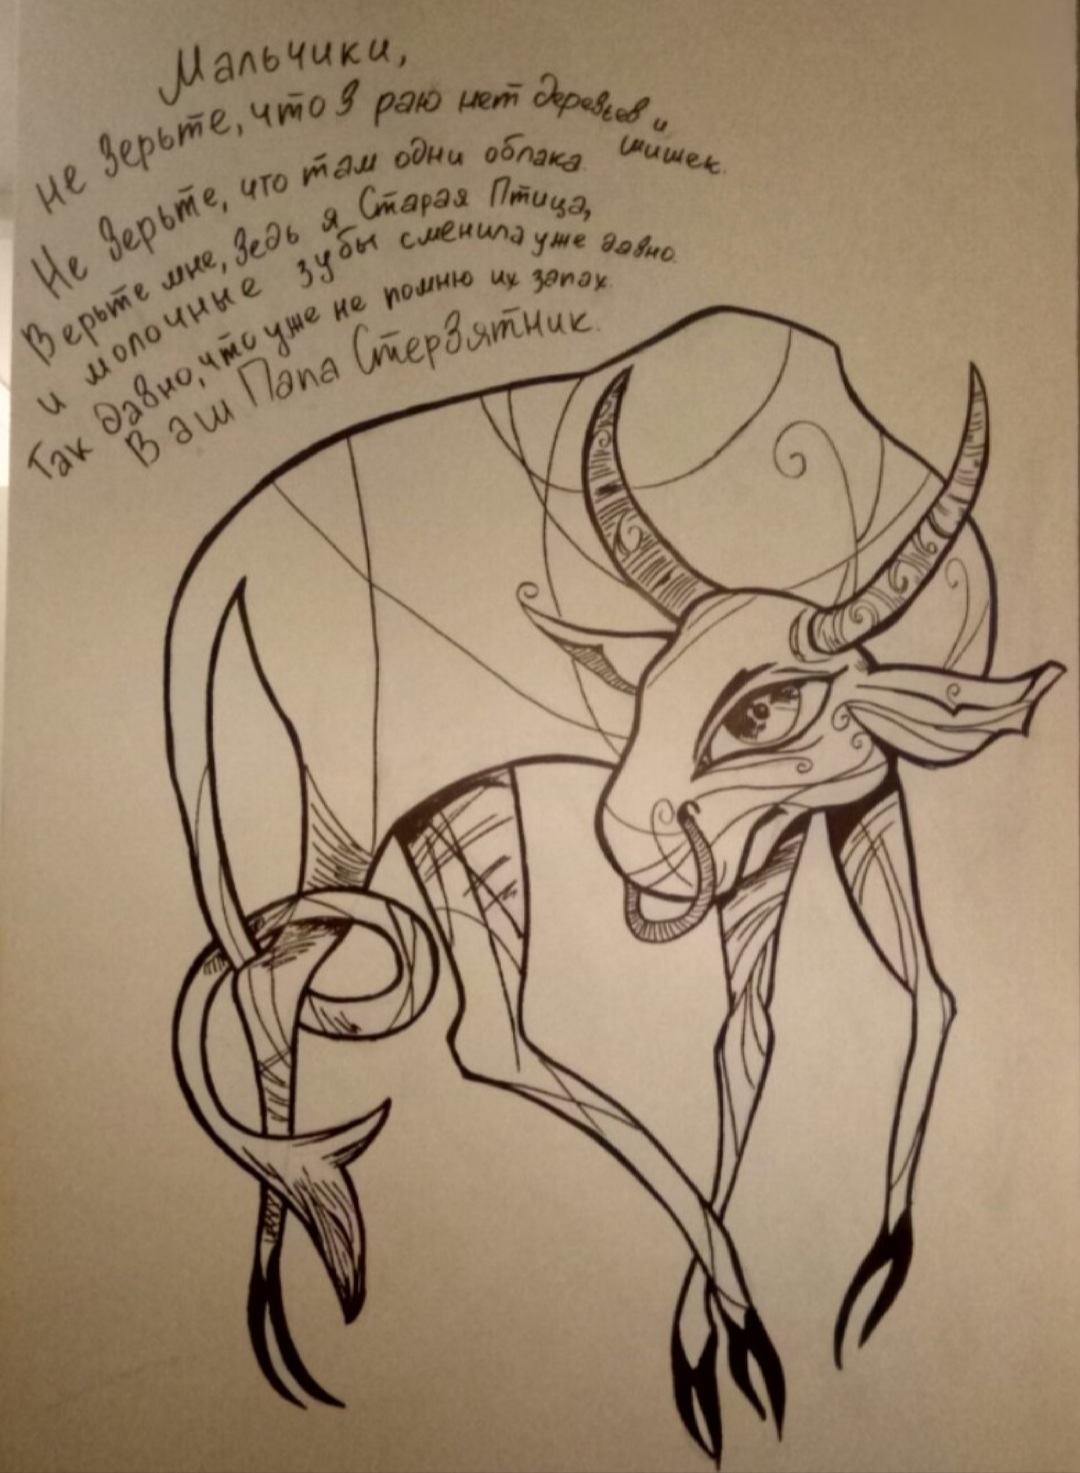 Мальчики,
не верьте, что в раю нет деревьев и
шишек.
Не верьте, что там одни облака.
Верьте мне, ведь я Старая Птица,
и молочные зубы сменила уже давно.
Так давно, что уже не помню их запах.
Ваш Папа Стервятник.